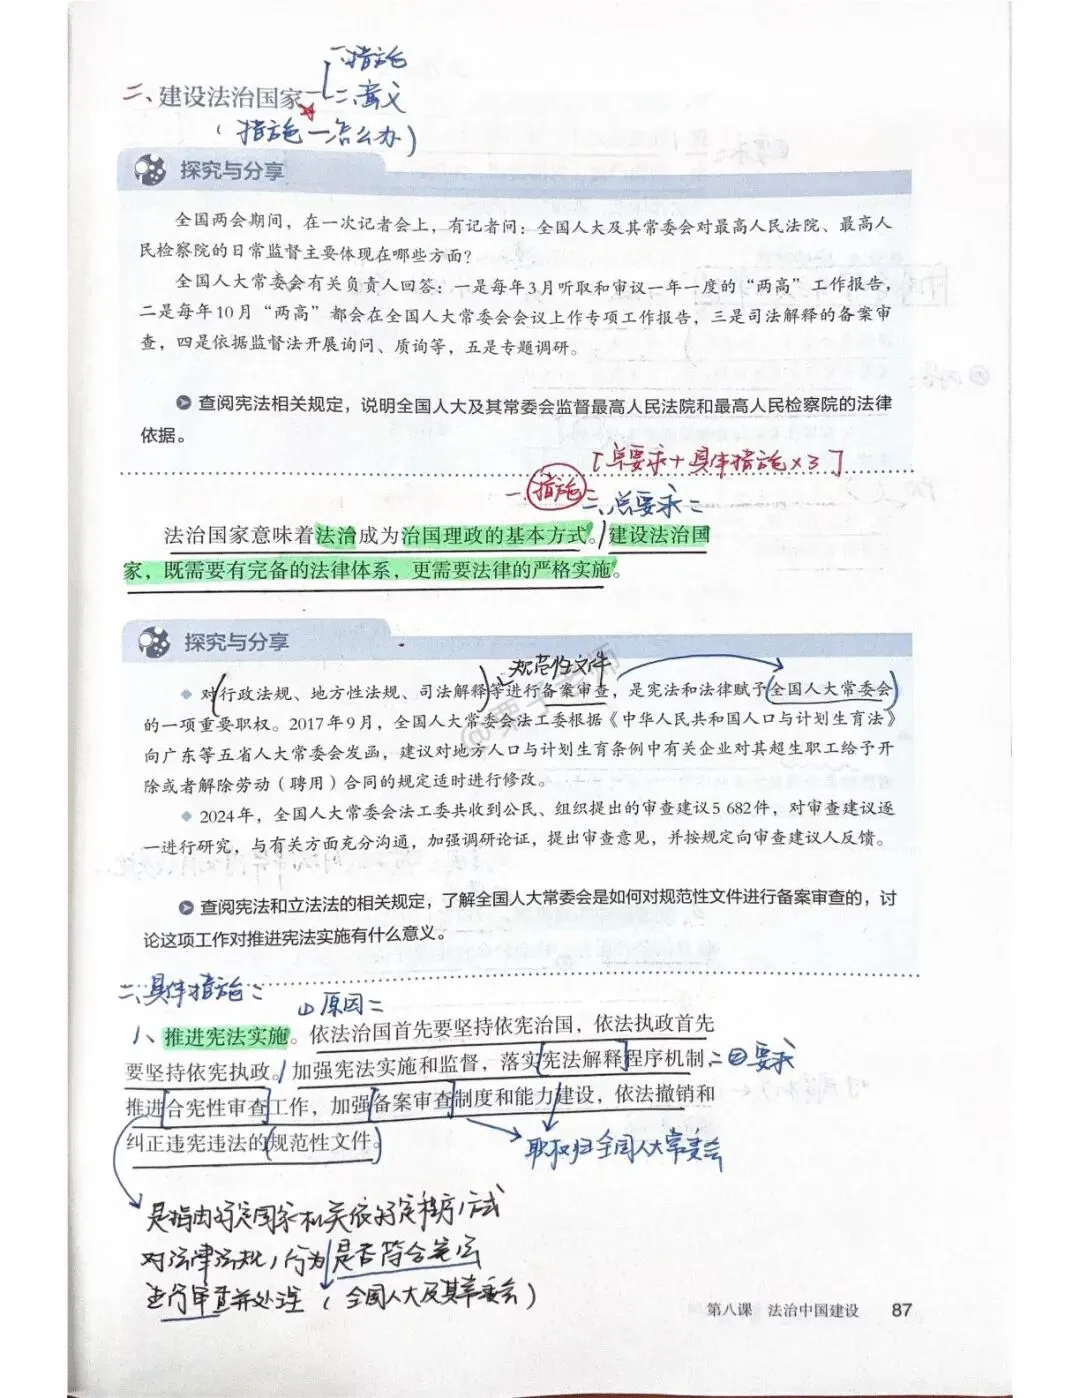 一、措施
二、建设法治国家
二、意义
(措施—怎么办)
探究与分享
全国两会期间，在一次记者会上，有记者问：全国人大及其常委会对最高人民法院、最高人
民检察院的日常监督主要体现在哪些方面？
全国人大常委会有关负责人回答：一是每年3月听取和审议一年一度的“两高”工作报告，
二是每年10月“两高”都会在全国人大常委会会议上作专项工作报告，三是司法解释的备案审
查，四是依据监督法开展询问、质询等，五是专题调研。
查阅宪法相关规定，说明全国人大及其常委会监督最高人民法院和最高人民检察院的法律
依据。
[总要求+具体措施×3]
一、措施
一、总要求：
法治国家意味着法治成为治国理政的基本方式。建设法治国
家，既需要有完备的法律体系，更需要法律的严格实施。
探究与分享
规范性文件
对行政法规、地方性法规、司法解释等进行备案审查，是宪法和法律赋予全国人大常委会
的一项重要职权。2017年9月，全国人大常委会法工委根据《中华人民共和国人口与计划生育法》
向广东等五省人大常委会发函，建议对地方人口与计划生育条例中有关企业对其超生职工给予开
除或者解除劳动（聘用）合同的规定适时进行修改。
2024年，全国人大常委会法工委共收到公民、组织提出的审查建议5 682件，对审查建议逐
一进行研究，与有关方面充分沟通，加强调研论证，提出审查意见，并按规定向审查建议人反馈。
@栗子老师
查阅宪法和立法法的相关规定，了解全国人大常委会是如何对规范性文件进行备案审查的，讨
论这项工作对推进宪法实施有什么意义。
二、具体措施：
①原因：
1、推进宪法实施。依法治国首先要坚持依宪治国，依法执政首先
要坚持依宪执政。加强宪法实施和监督，落实宪法解释程序机制，②要求
推进合宪性审查工作，加强备案审查制度和能力建设，依法撤销和
纠正违宪违法的规范性文件。
职权归全国人大常委会
是指由特定国家机关依特定程序/方式
对法律法规/行为是否符合宪法
进行审查并处理（全国人大及其常委会）
第八课 法治中国建设 87